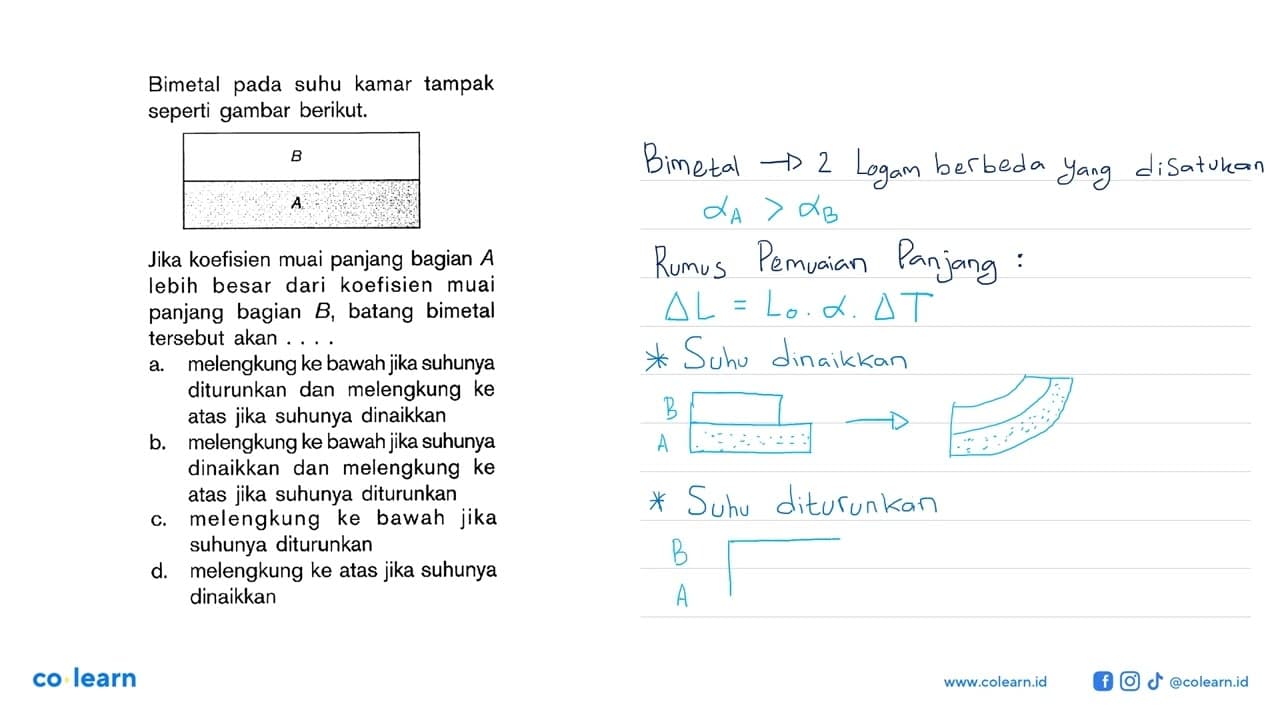 Bimetal pada suhu kamar tampak
seperti gambar berikut.
B
A
Jika koefisien muai panjang bagian A
lebih besar dari koefisien muai
panjang bagian B, batang bimetal
tersebut akan . . . .
a. melengkung ke bawah jika suhunya
diturunkan dan melengkung ke
atas jika suhunya dinaikkan
b. melengkung ke bawah jika suhunya
dinaikkan dan melengkung ke
atas jika suhunya diturunkan
c. melengkung ke bawah jika
suhunya diturunkan
d. melengkung ke atas jika suhunya
dinaikkan
Bimetal → 2 Logam berbeda yang disatukan
αA > αB
Rumus Pemuaian Panjang :
ΔL = Lo . α . ΔT
* Suhu dinaikkan
B
A
* Suhu diturunkan
B
A
co learn
www.colearn.id
@colearn.id